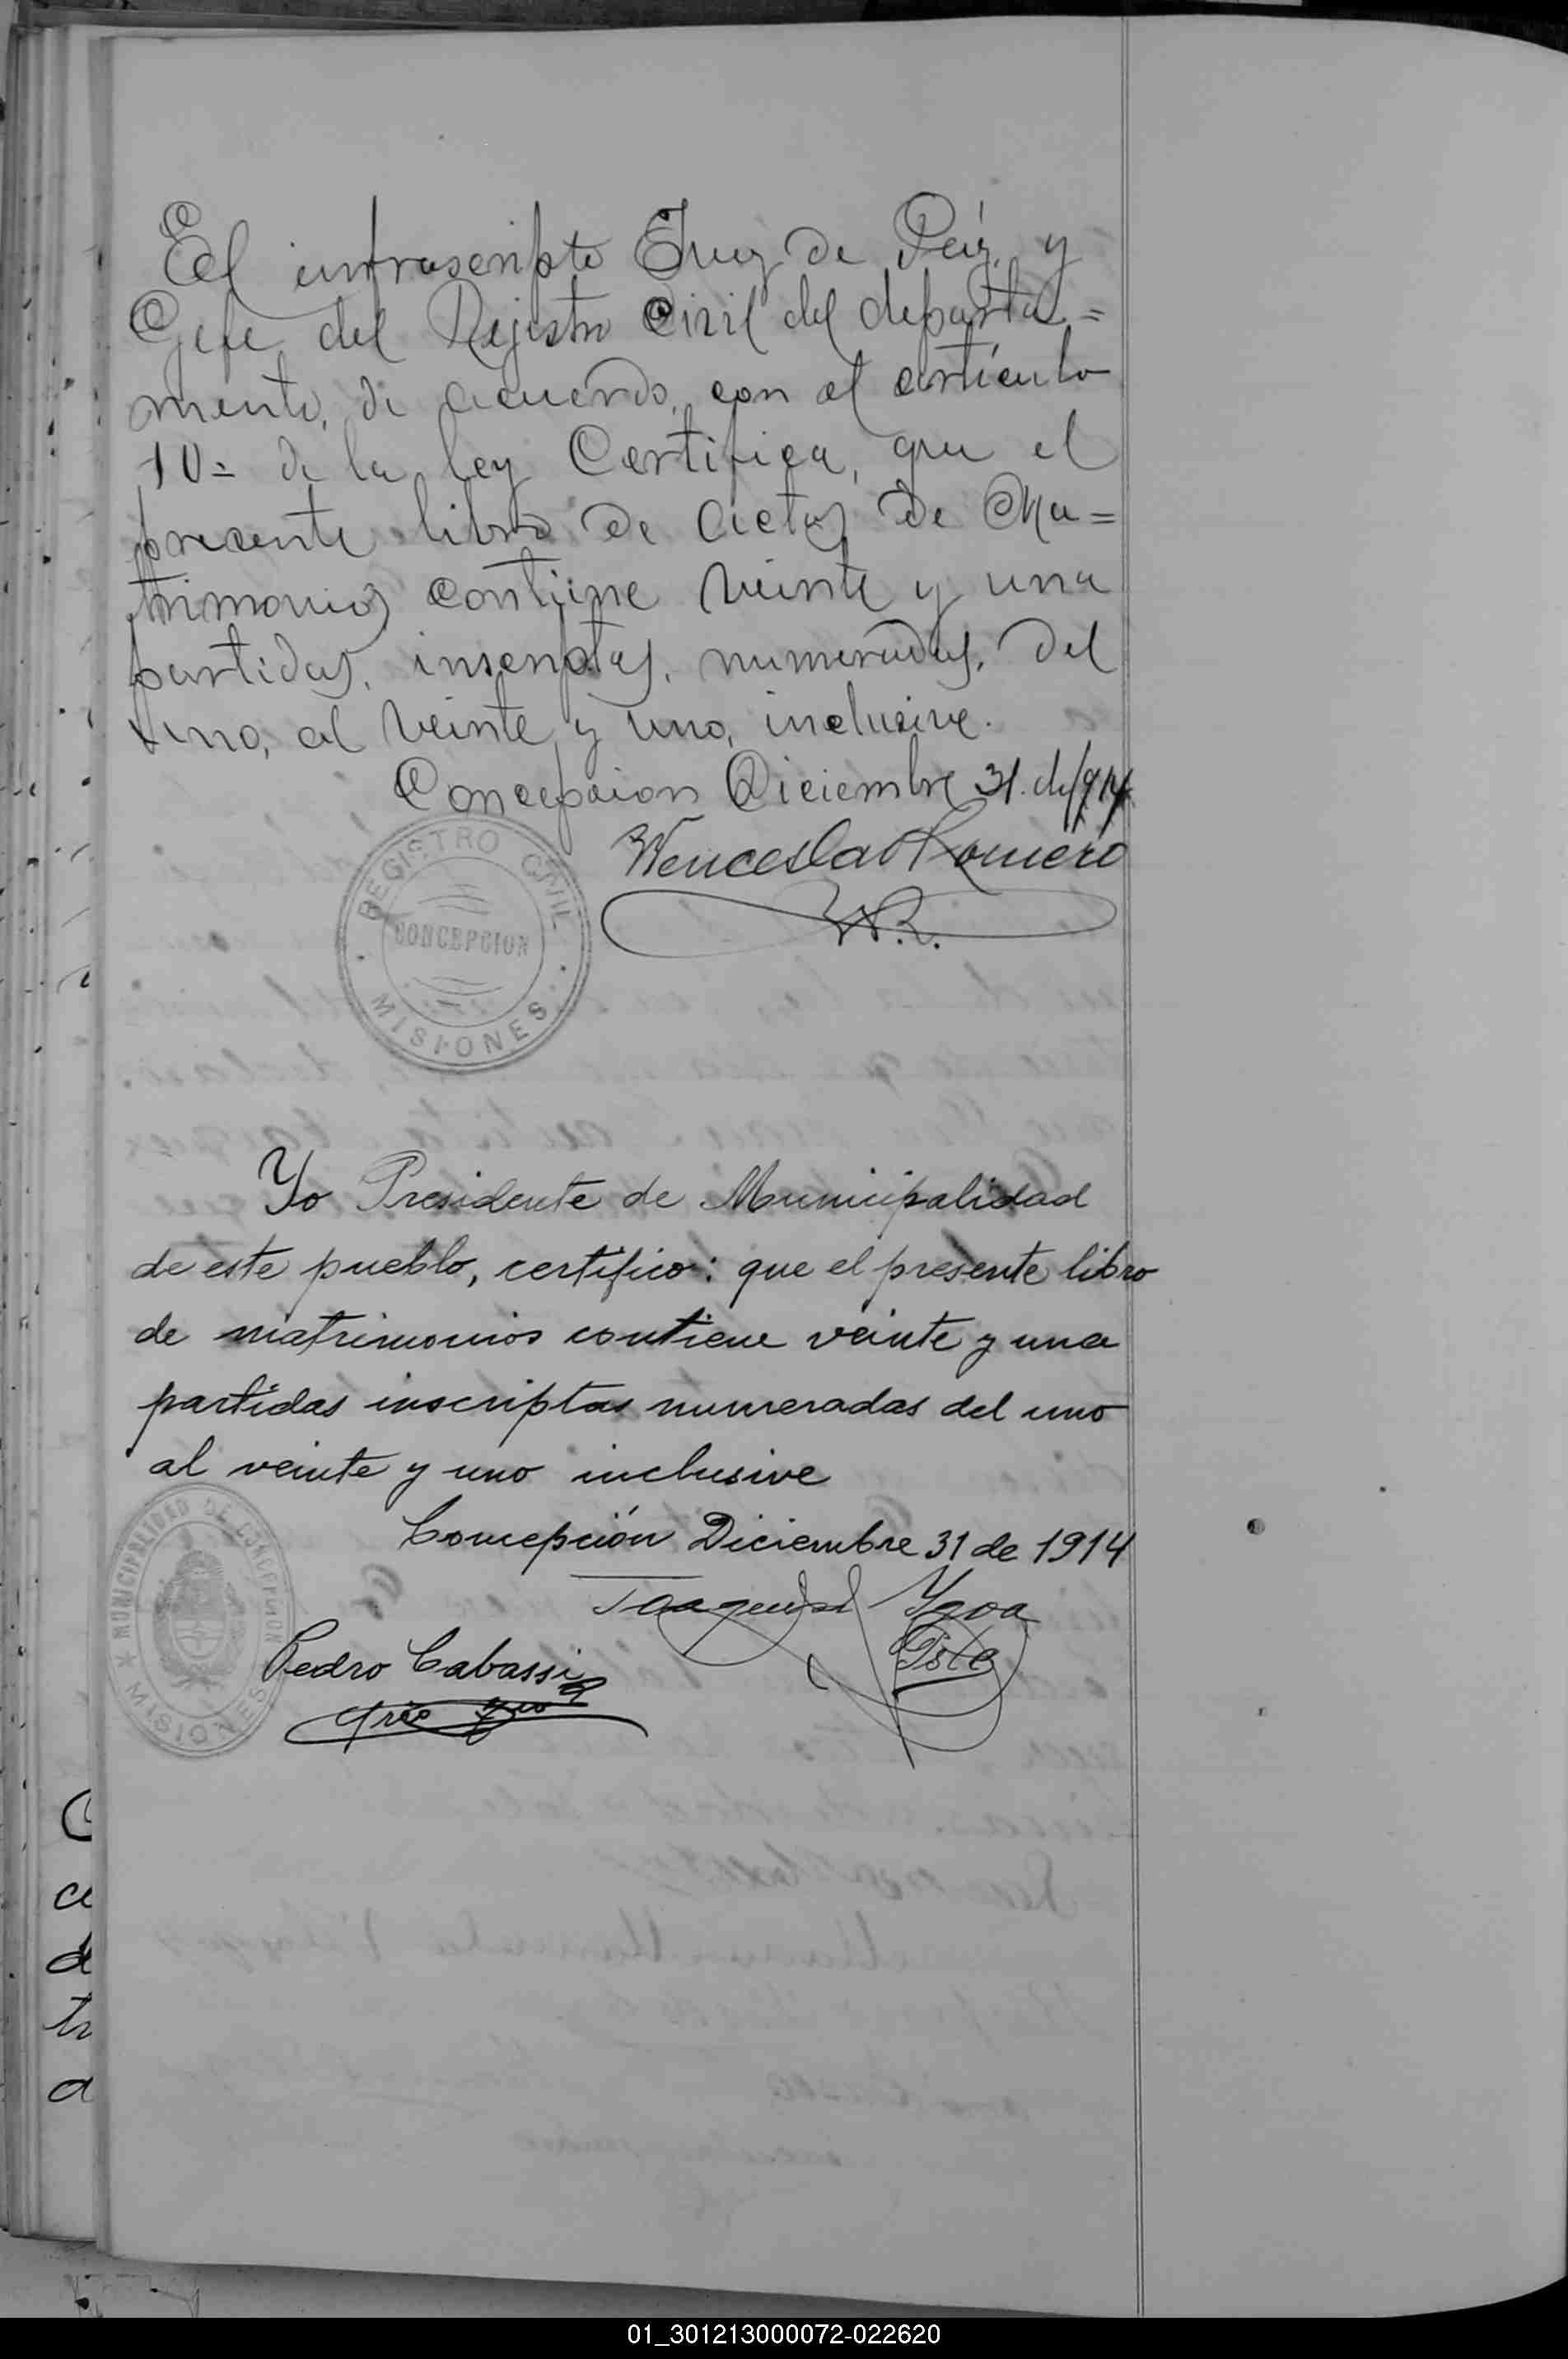 El infrascripto Juez de Páz, y
Gefe del Rejistro Civil del departa=
mento, de acuerdo, con el artículo
10= de la ley Certifica, que el
presente libro de actas de Ma=
trimonios contiene veinte y una
partidas, inscriptas, numeradas, del
uno, al veinte y uno, inclusive.
Concepcion Diciembre 31. de 1914
Wenceslao Romero
W.R.
REGISTRO CIVIL
CONCEPCION
MISIONES
Yo Presidente de Municipalidad
de este pueblo, certifico: que el presente libro
de matrimonios contiene veinte y una
partidas inscriptas numeradas del uno
al veinte y uno inclusive
Concepción Diciembre 31 de 1914
MUNICIPALIDAD DE CONCEPCION
MISIONES
Pedro Cabassi
01_301213000072-022620